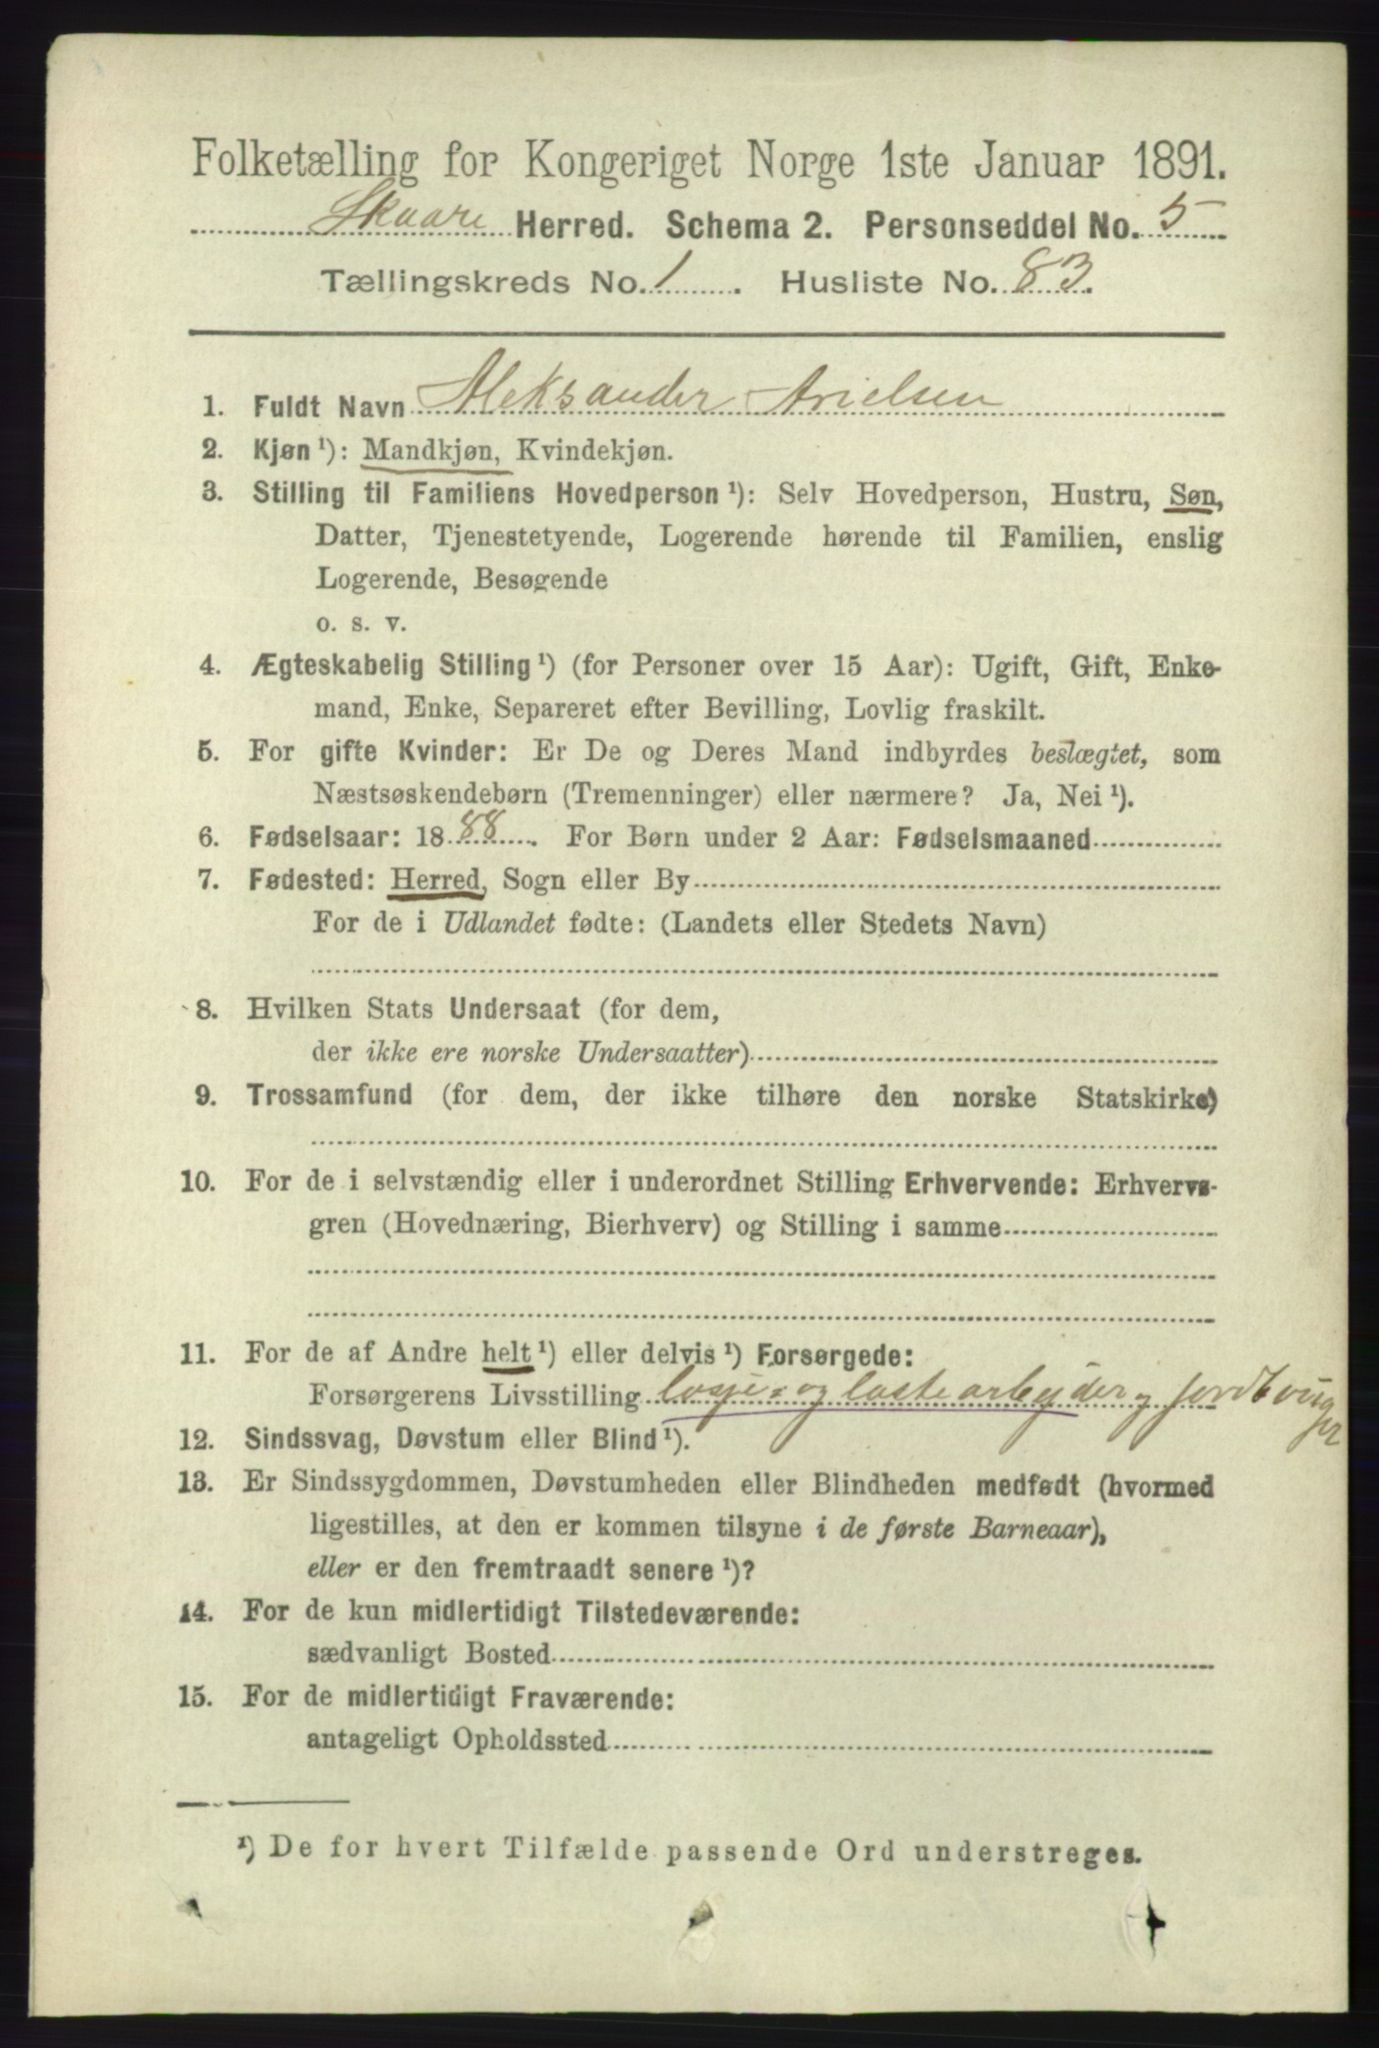 Folketælling for Kongeriget Norge 1ste Januar 1891.
Skaare Herred. Schema 2. Personseddel No. 5
Tællingskreds No. 1. Husliste No. 83.
1. Fuldt Navn Aleksander Arielsen
2. Kjøn ¹): Mandkjøn, Kvindekjøn.
3. Stilling til Familiens Hovedperson ¹): Selv Hovedperson, Hustru, Søn,
Datter, Tjenestetyende, Logerende hørende til Familien, enslig
Logerende, Besøgende
o. s. v.
4. Ægteskabelig Stilling ¹) (for Personer over 15 Aar): Ugift, Gift, Enke-
mand, Enke, Separeret efter Bevilling, Lovlig fraskilt.
5. For gifte Kvinder: Er De og Deres Mand indbyrdes beslægtet, som
Næstsøskendebørn (Tremenninger) eller nærmere? Ja, Nei ¹).
6. Fødselsaar: 1888. For Børn under 2 Aar: Fødselsmaaned
7. Fødested: Herred, Sogn eller By
For de i Udlandet fødte: (Landets eller Stedets Navn)
8. Hvilken Stats Undersaat (for dem,
der ikke ere norske Undersaatter)
9. Trossamfund (for dem, der ikke tilhøre den norske Statskirke)
10. For de i selvstændig eller i underordnet Stilling Erhvervende: Erhvervs-
gren (Hovednæring, Bierhverv) og Stilling i samme
11. For de af Andre helt ¹) eller delvis ¹) Forsørgede:
Forsørgerens Livsstilling losje- og lastearbejder, jordbruger
12. Sindssvag, Døvstum eller Blind ¹).
13. Er Sindssygdommen, Døvstumheden eller Blindheden medfødt (hvormed
ligestilles, at den er kommen tilsyne i de første Barneaar),
eller er den fremtraadt senere ¹)?
14. For de kun midlertidigt Tilstedeværende:
sædvanligt Bosted
15. For de midlertidigt Fraværende:
antageligt Opholdssted
¹) De for hvert Tilfælde passende Ord understreges.